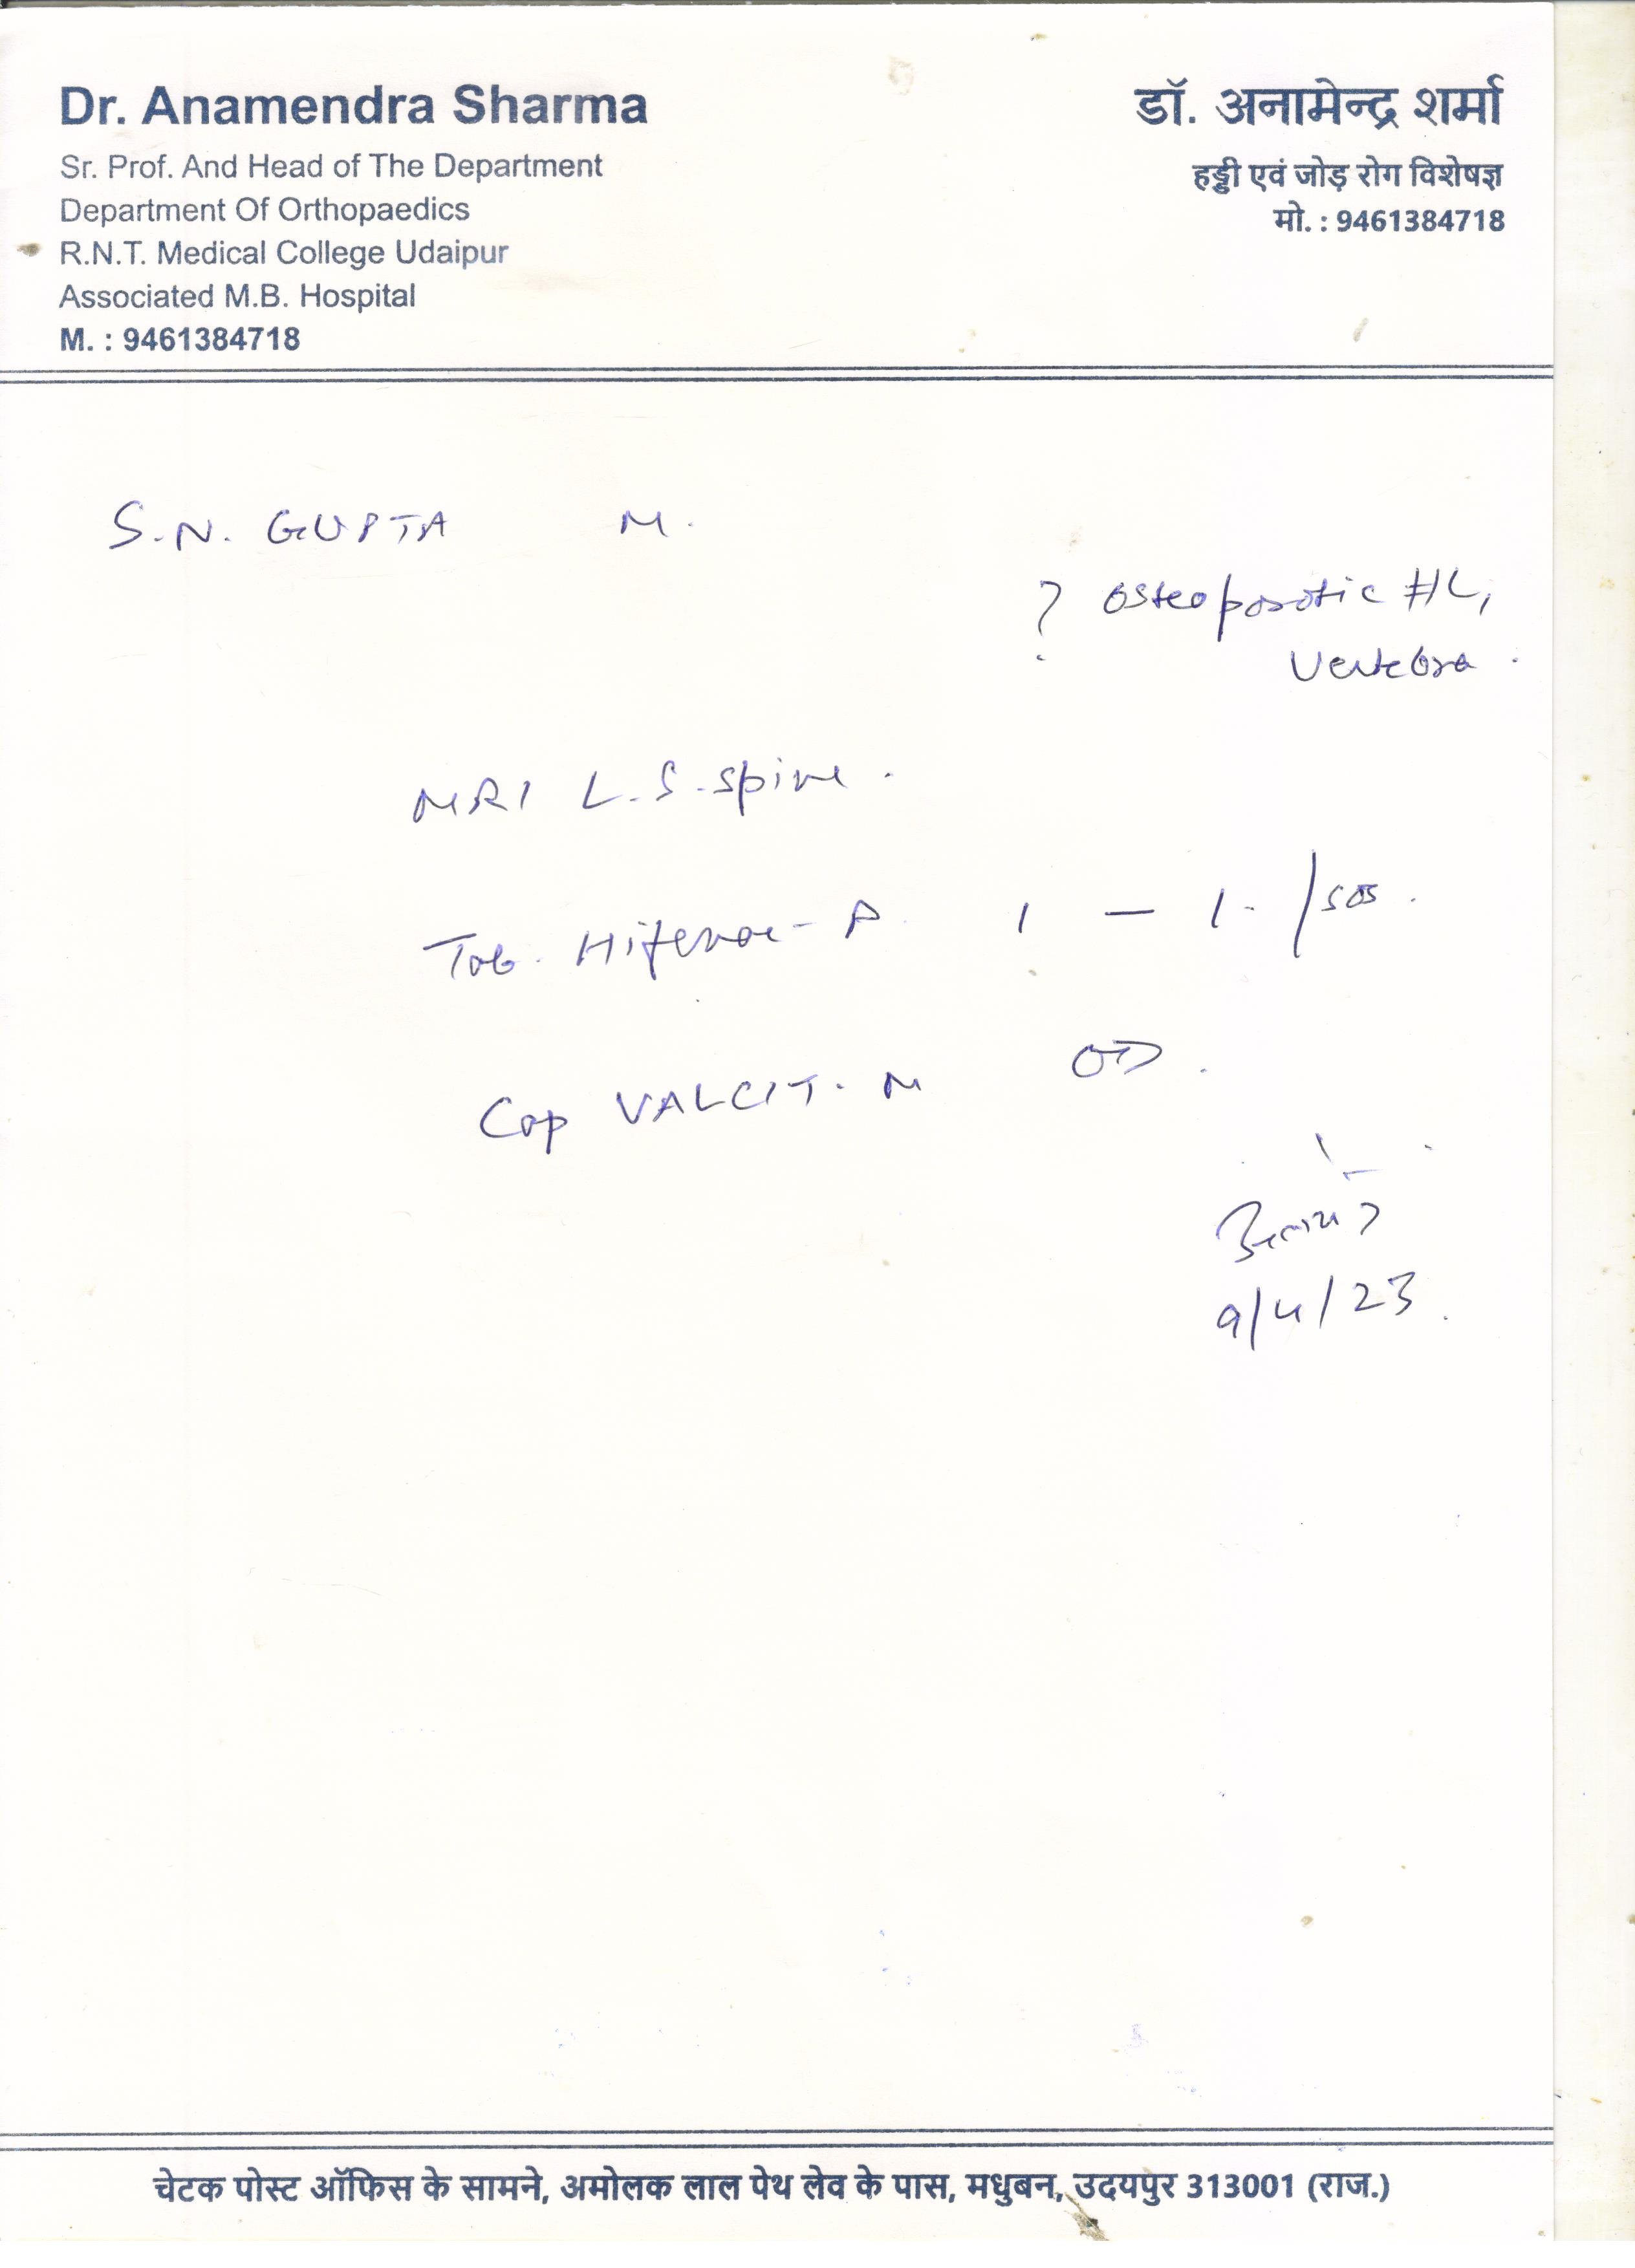 Dr. Anamendra Sharma
Sr. Prof. And Head of The Department
Department Of Orthopaedics
R.N.T. Medical College Udaipur
Associated M.B. Hospital
M. : 9461384718
डॉ. अनामेन्द्र शर्मा
हड्डी एवं जोड़ रोग विशेषज्ञ
मो. : 9461384718
S.N. GUPTA M.
? Osteoporotic # L1
Vertebra.
MRI L.S. spine.
Tab. Hifenac-P 1 — 1 /SOS.
Cap VALCIT-M OD.
9/4/23
चेटक पोस्ट ऑफिस के सामने, अमोलक लाल पेथ लेव के पास, मधुबन, उदयपुर 313001 (राज.)